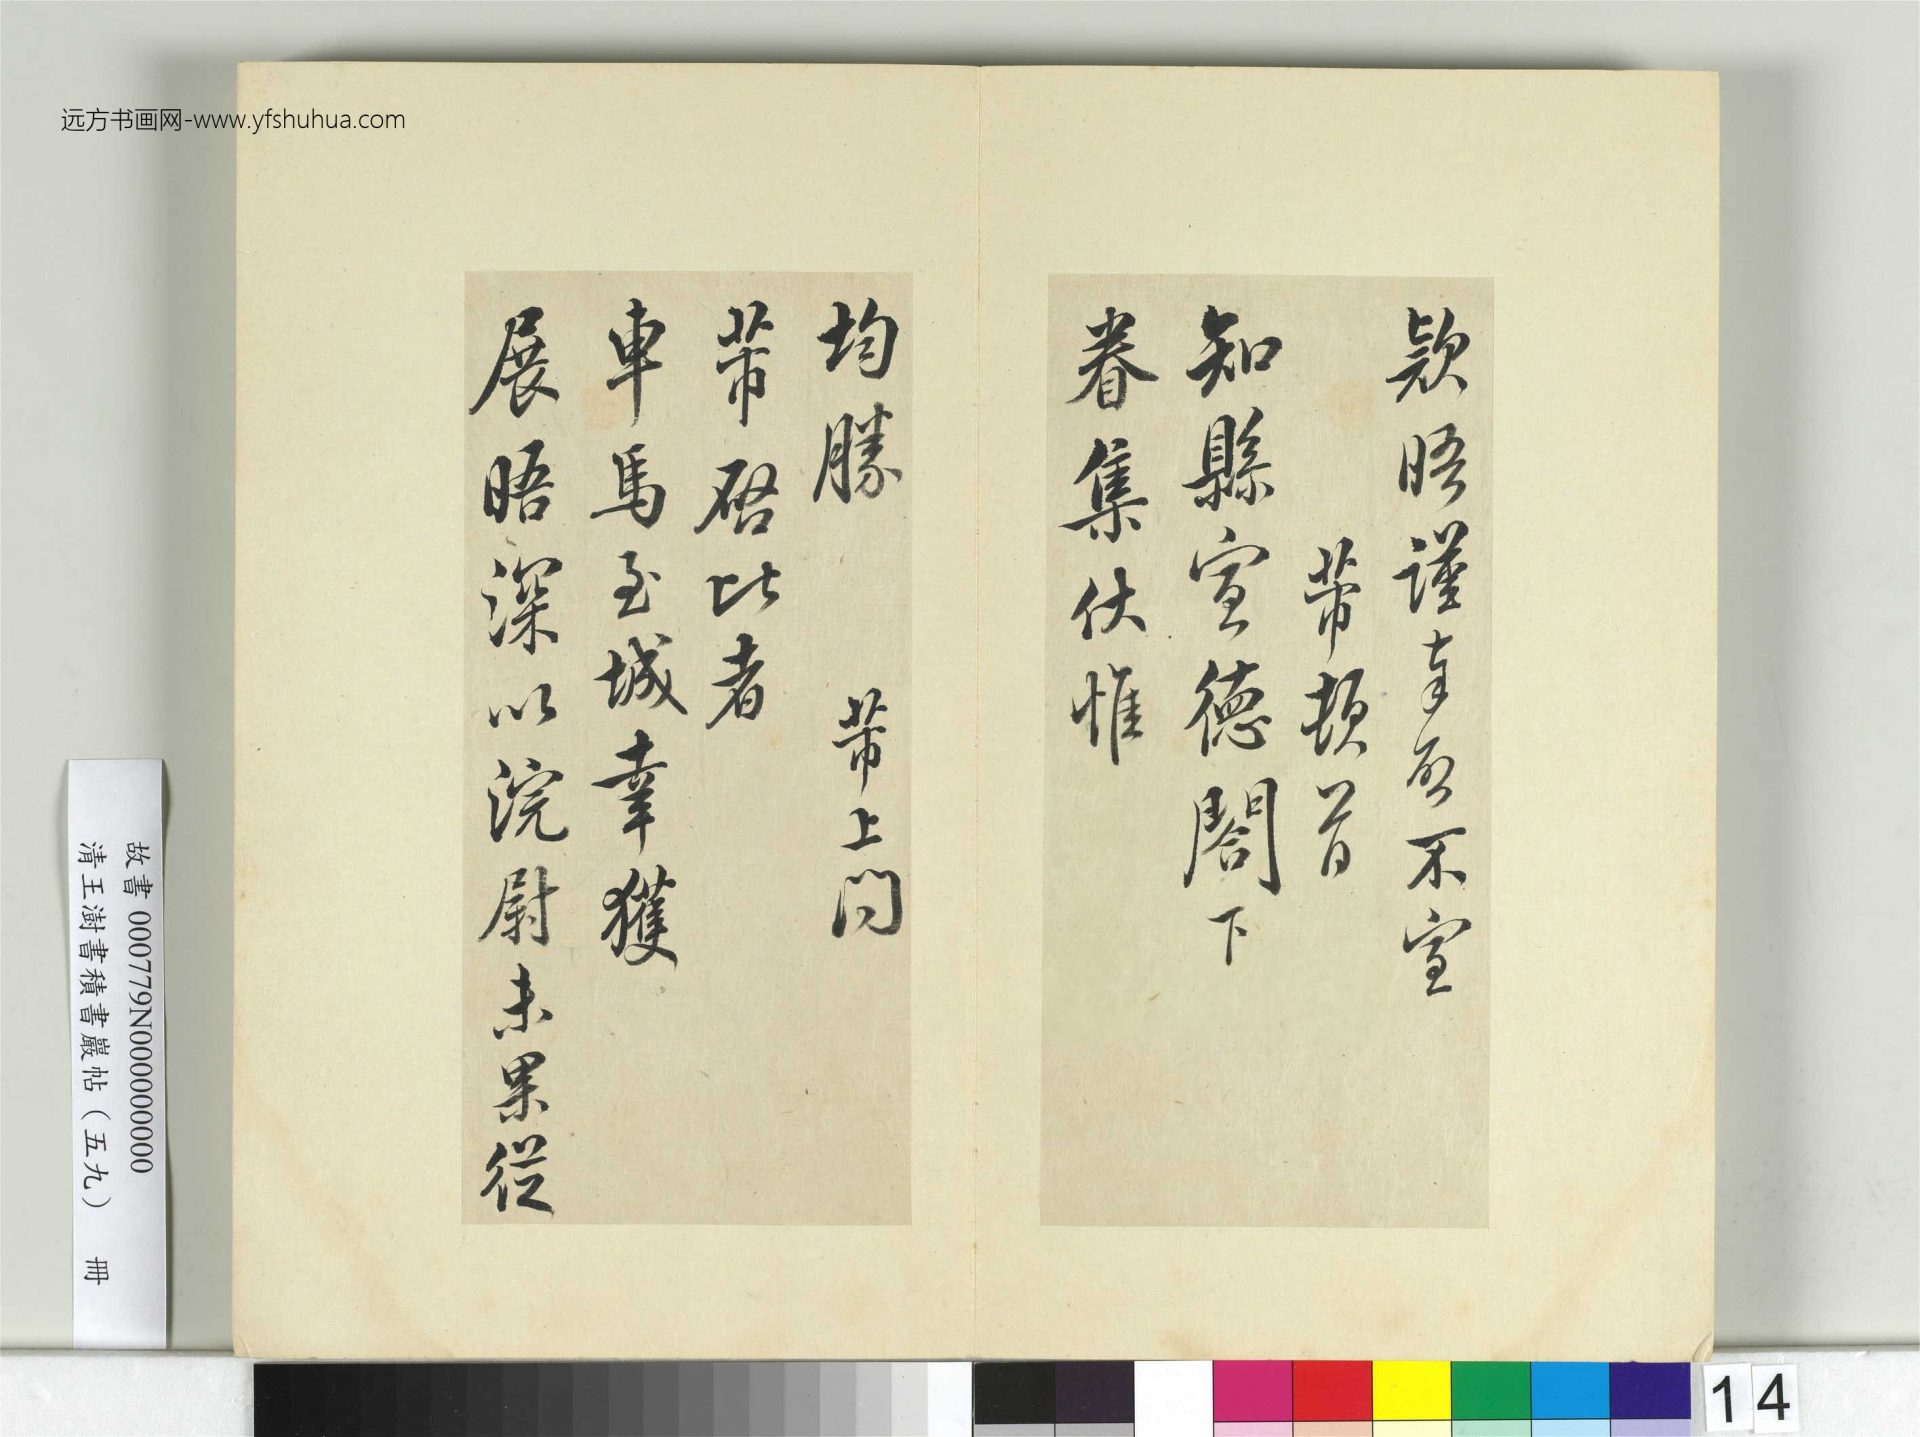 远方书画网-www.yfshuhua.com
欵晤謹奉啓不宣
芾頓首
知縣宣德閤下
眷集伏惟
均勝 芾上問
芾啓比者
車馬至城幸獲
展晤深以浣尉未果從
故書 000779N000000000
清王澍書積書巖帖（五九） 冊
14